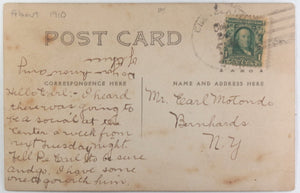 About 1910
POST CARD
CORRESPONDENCE HERE
NAME AND ADDRESS HERE
Hello Carl:- I heard
there was going to
be a social at the
Center a week from
next Tuesday night.
Tell Pa Carl to be sure
and go. I have some
one to go with him.
Mr. Carl
Bernhards
N.Y.